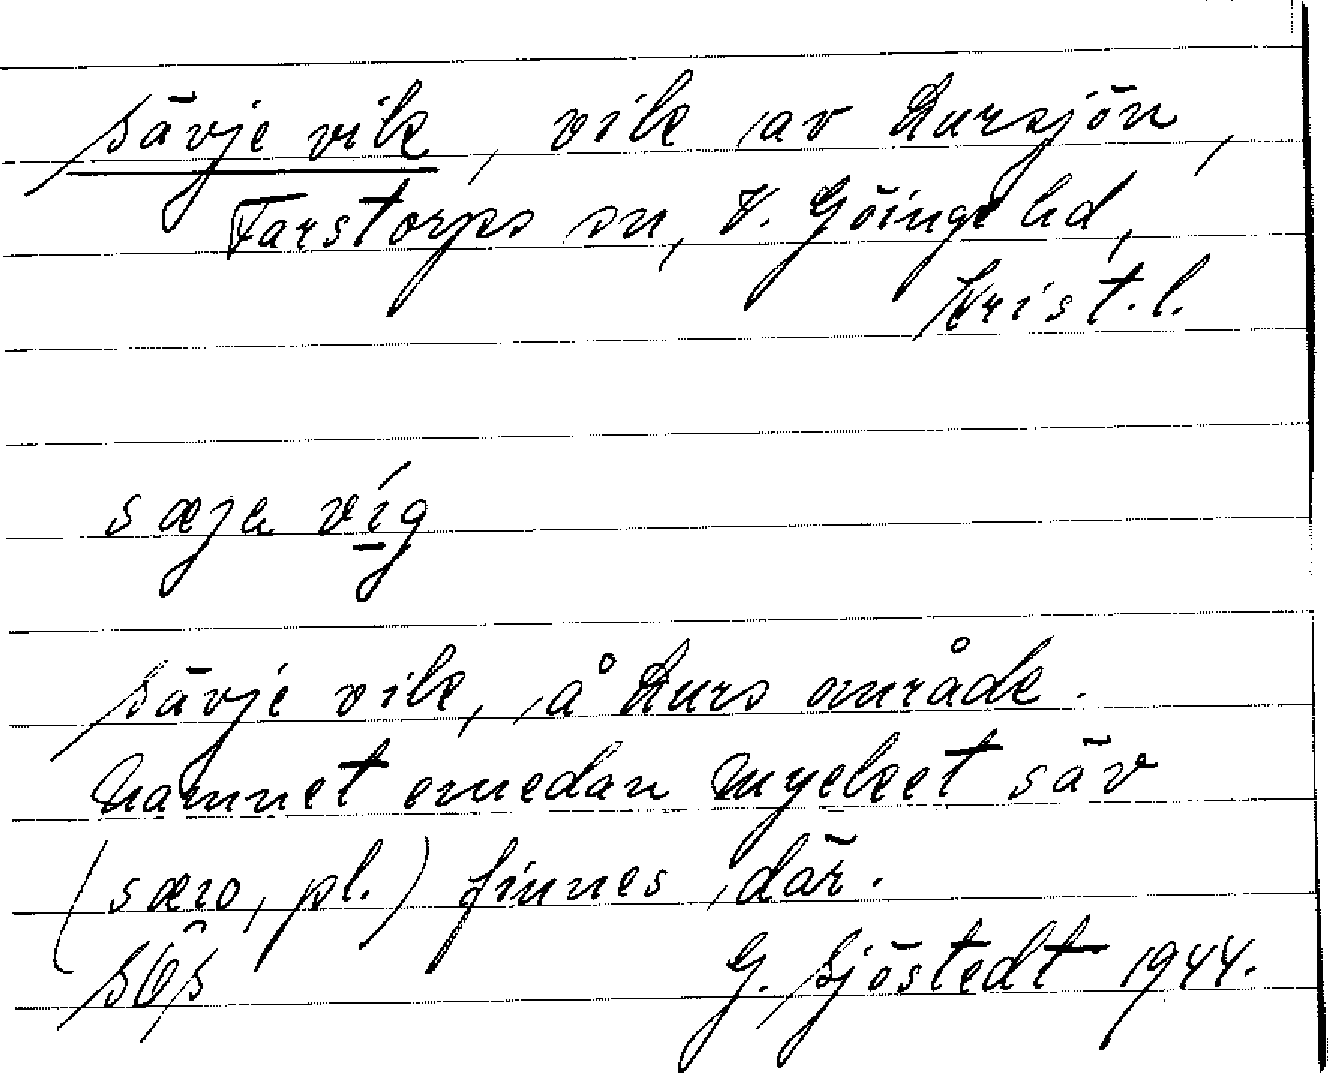 Sävje vik, vik av Lursjön,
Farstorps sn, V. Göinge hd,
Krist.l.
sæje víg
Sävje vik, å Lurs område.
Namnet emedan mycket säv
(sæw, pl.) finnes där.
G. Sjöstedt 1944.